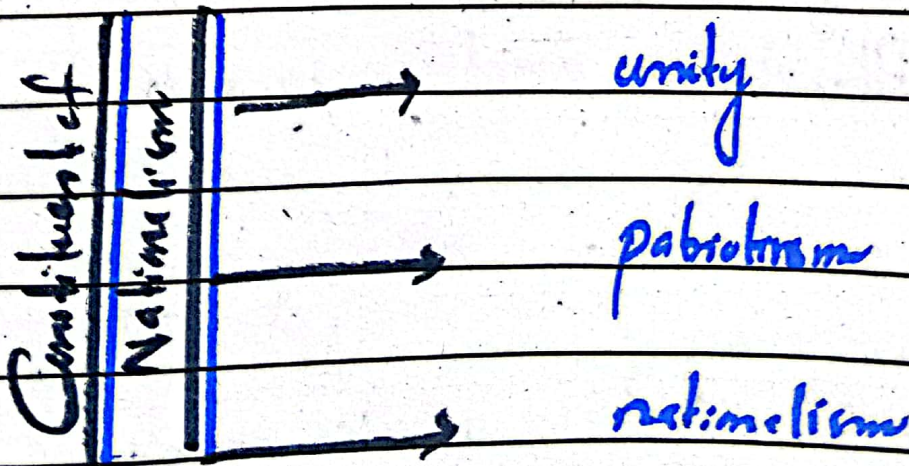 Constituent of
Nationalism
unity
patriotism
nationalism